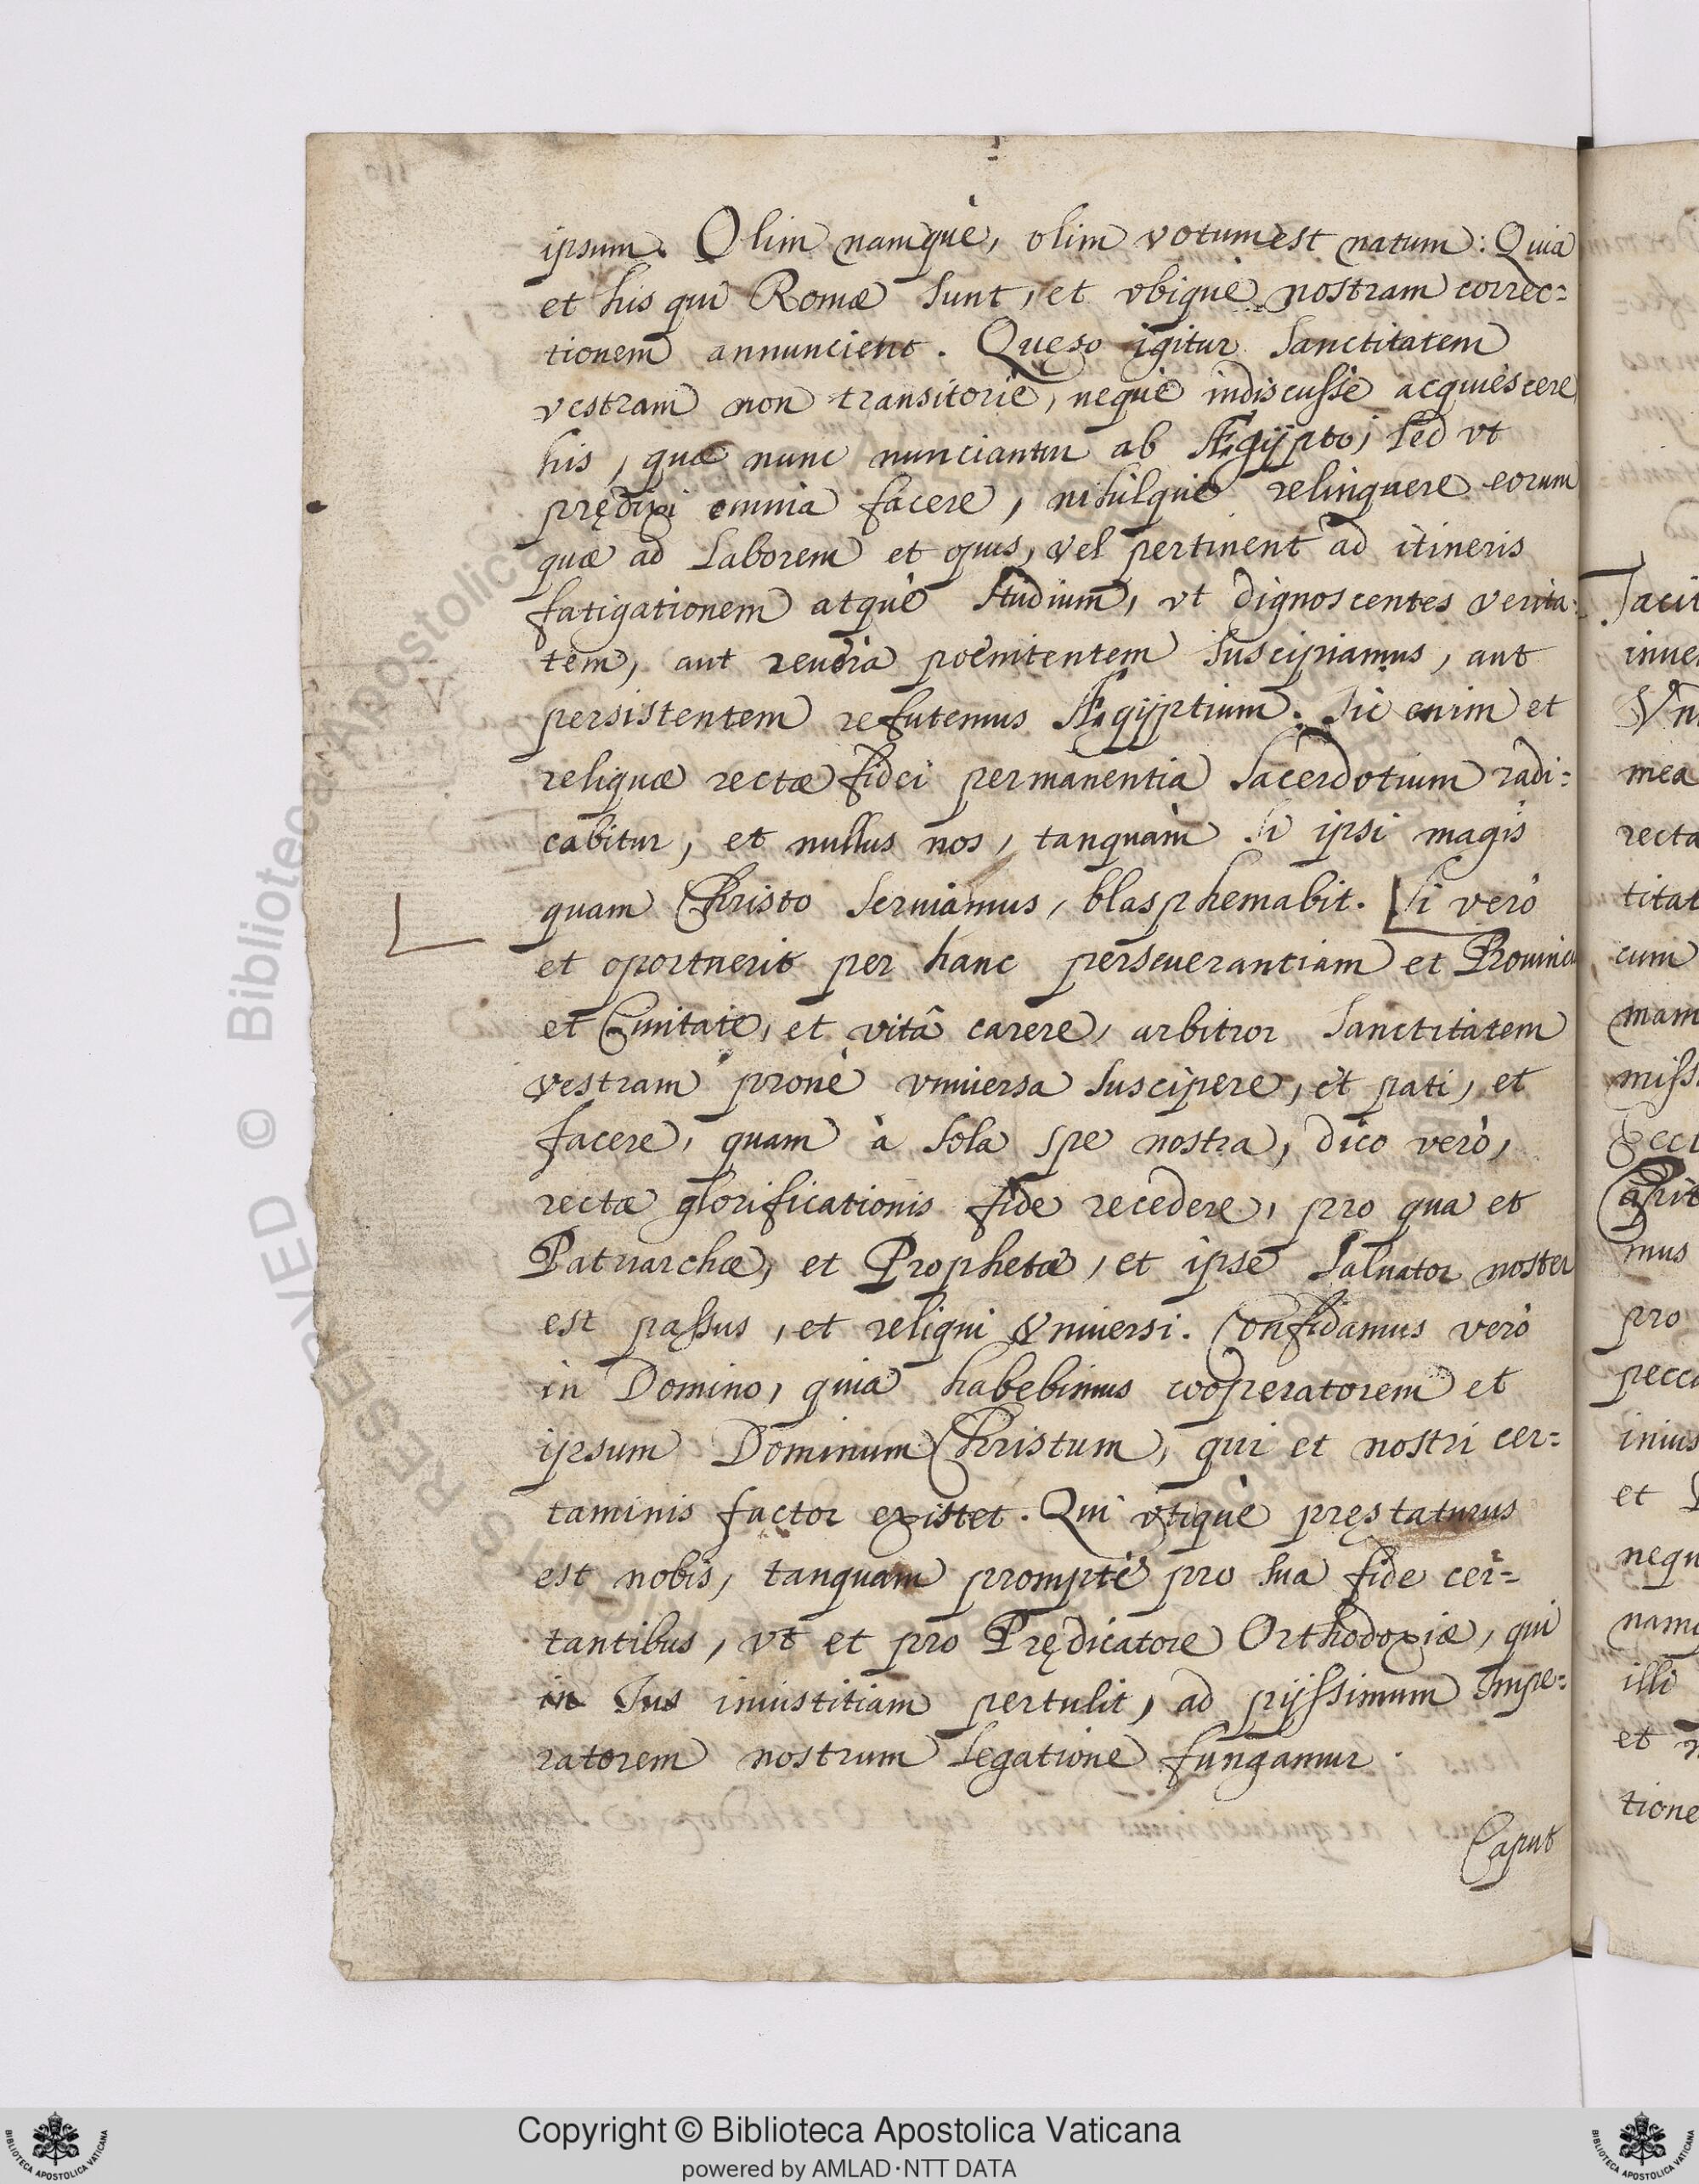 ipsum. Olim namquè, olim votum est natum: Quia
et his qui Romæ sunt, et vbiquè nostram correc=
tionem annuncient. Quęso igitur Sanctitatem
vestram non transitoriè, nequè indiscussè acquiescere
his, quæ nunc nunciantur ab Ægÿpto, sed vt
prędixi omnia facere, nihilquè relinquere eorum
quæ ad Laborem et opus, vel pertinent ad itineris
fatigationem atquè studium, vt dignoscentes verita=
tem, aut reuera poenitentem suscipiamus, aut
persistentem refutemus Ægÿptium. Sic enim et
reliquæ rectæ fidei permanentia Sacerdotium radi=
cabitur, et nullus nos, tanquàm si ipsi magis
quam Christo seruiamus, blasphemabit. Si verò
et oportuerit per hanc perseuerantiam et Prouincia
et Ciuitate, et vitâ carere, arbitror Sanctitatem
vestram pronè vniuersa suscipere, et pati, et
facere, quam à sola spe nostra, dico verò,
rectæ glorificationis fide recedere, pro qua et
Patriarchæ, et Prophetæ, et ipse Saluator noster
est passus, et reliqui vniuersi. Confidamus verò
in Domino, quia habebimus cooperatorem et
ipsum Dominum Christum, qui et nostri cer=
taminis factor existet. Qui vtiquè pręstaturus
est nobis, tanquam promptè pro sua fide cer=
tantibus, vt et pro Prędicatore Orthodoxiæ, qui
in Ius iniustitiam pertulit, ad pijssimum Impe=
ratorem nostrum legatione fungamur.
Caput
Tacit
inue
Vn
mea
recta
titat
cum
mam
miss
Eccl
mus
pro
pecca
inius
et
nequ
nam
illi
et
tione
RESERVED © Biblioteca Apostolica Vaticana
Copyright © Biblioteca Apostolica Vaticana
powered by AMLAD·NTT DATA
BIBLIOTECA APOSTOLICA VATICANA
BIBLIOTECA APOSTOLICA VATICANA